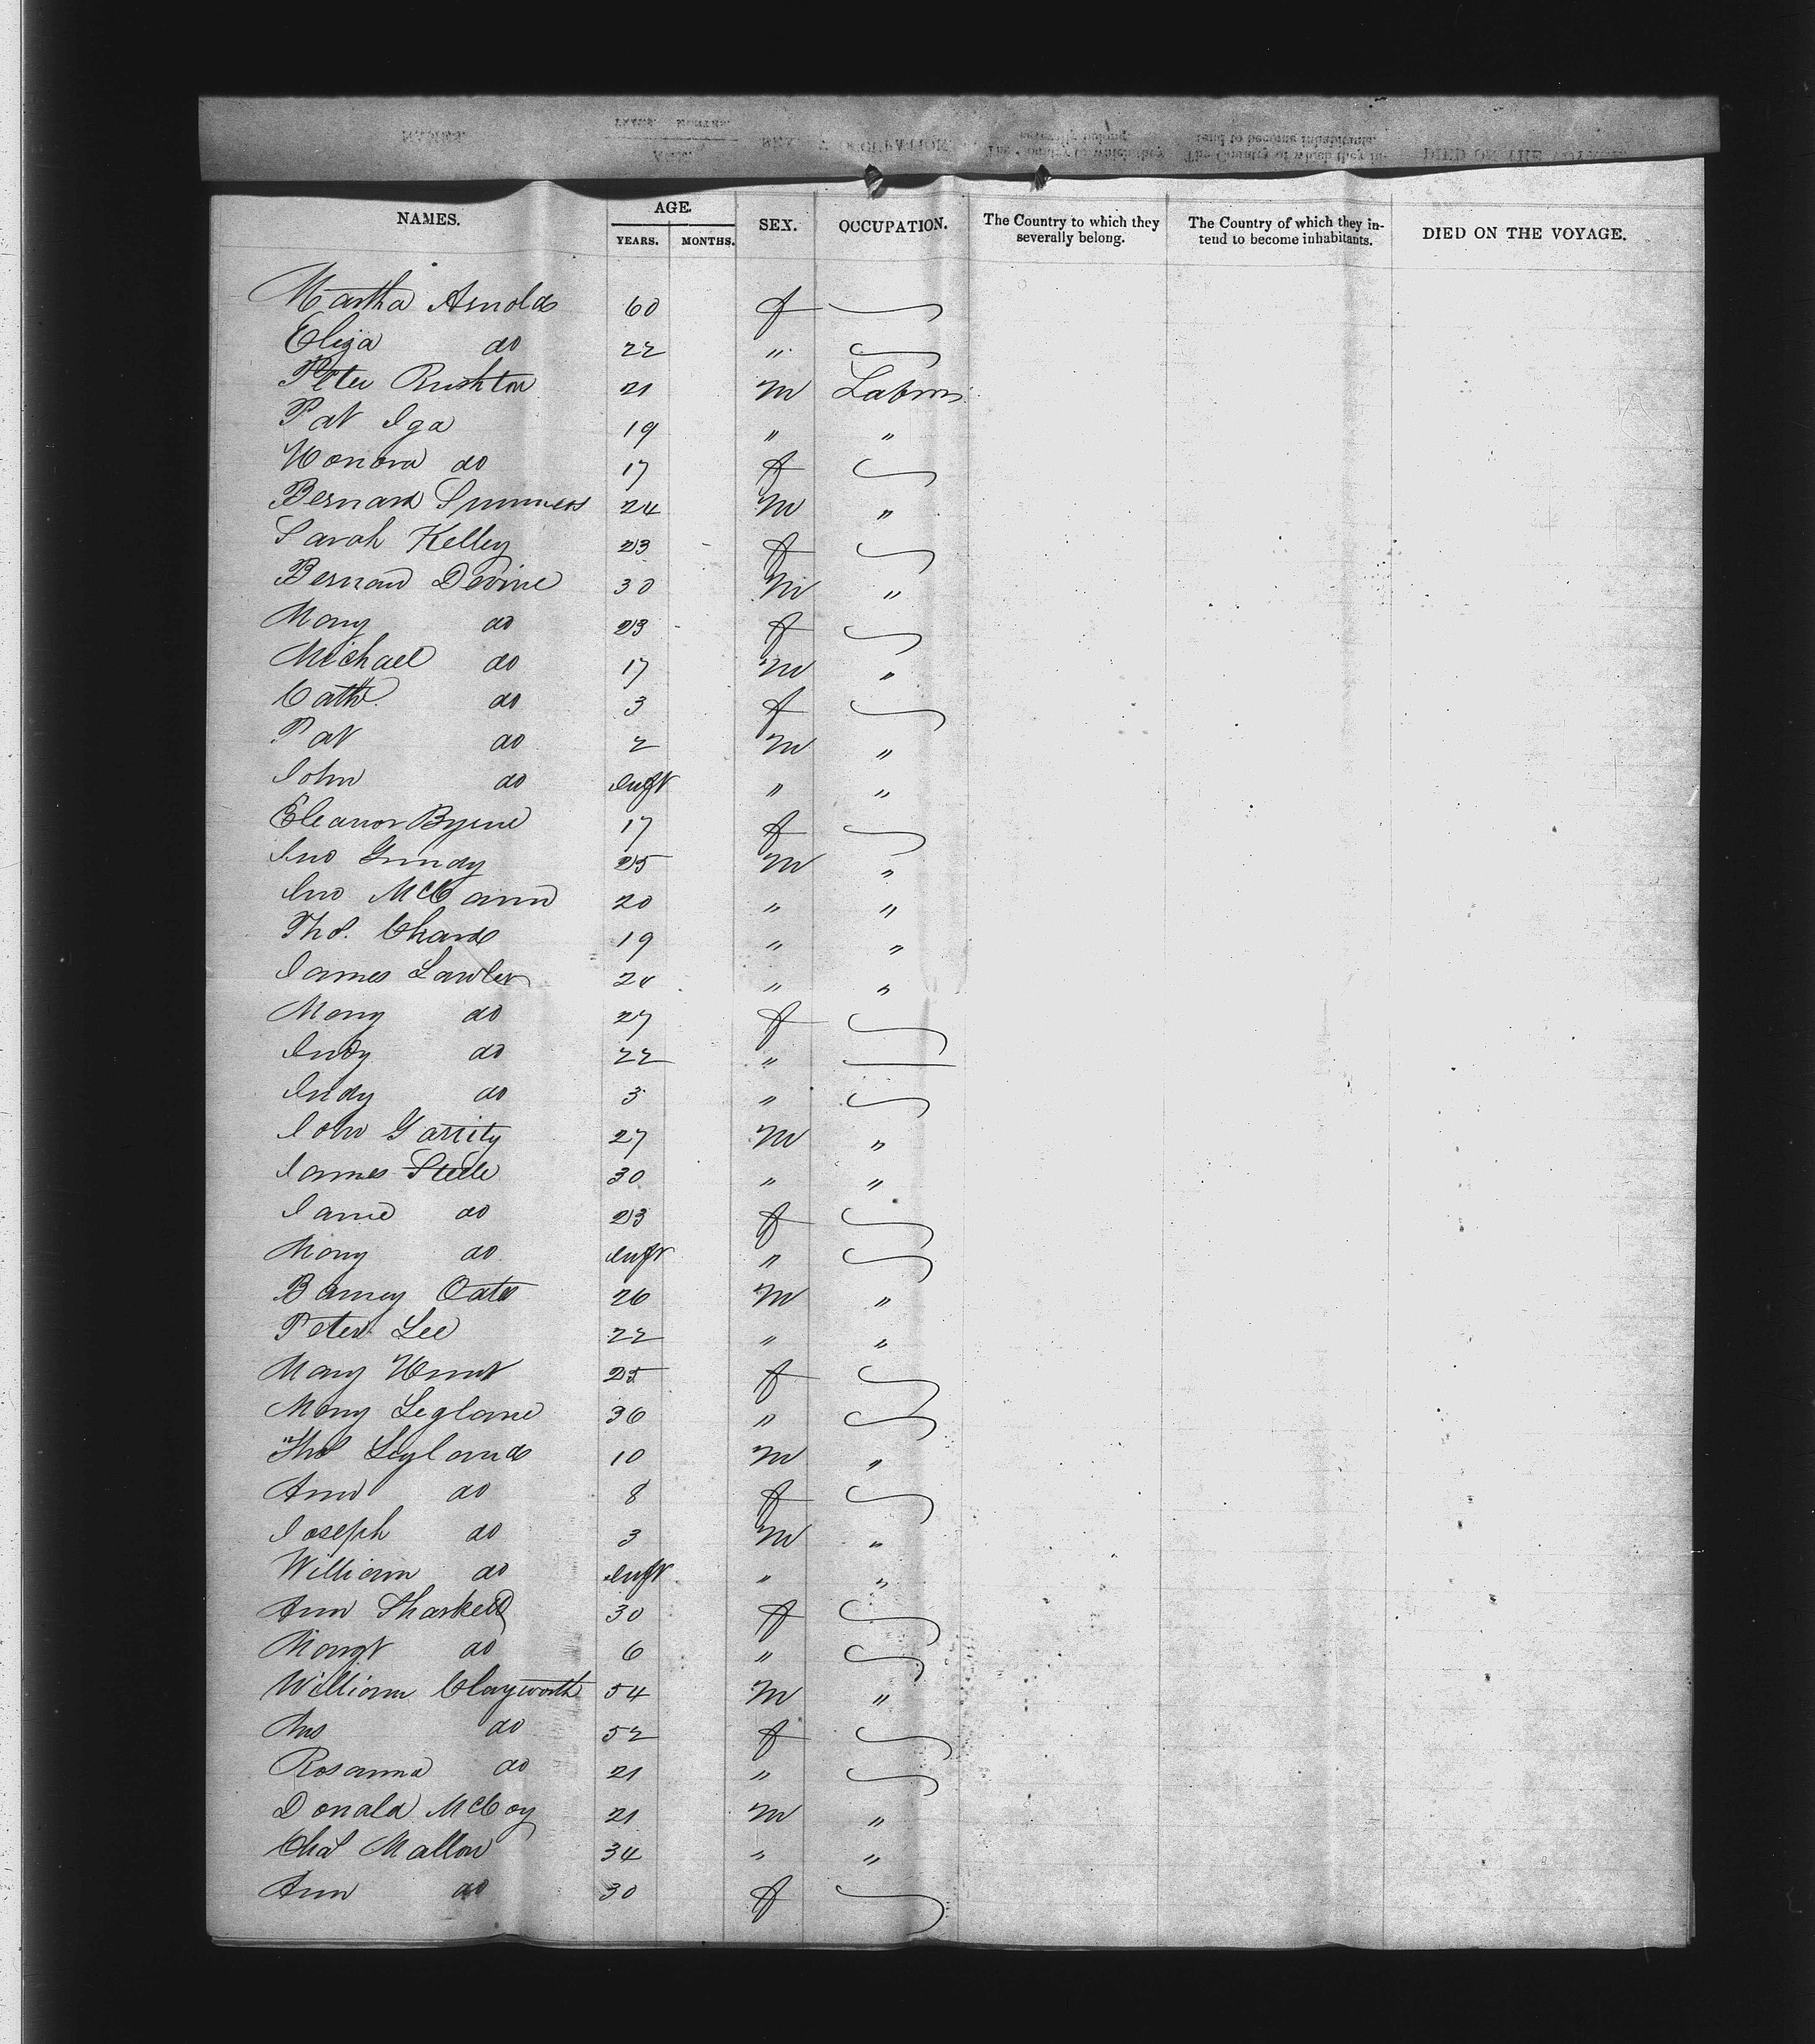 NAMES. AGE. YEARS. MONTHS. SEX. OCCUPATION. The Country to which they severally belong. The Country of which they intend to become inhabitants. DIED ON THE VOYAGE.
Martha Arnold 60 f
Eliza do 22 "
Peter Rushton 21 M Labor
Pat Iga 19 " "
Honora do 17 f
Bernard Summers 24 M "
Sarah Kelley 23 f
Bernard Devine 30 M "
Mary do 23 f
Michael do 17 M "
Cath do 3 f
Pat do 2 M "
John do Inft " "
Eleanor Byrne 17 f
Jno Grundy 25 M "
Jno McCann 20 " "
Thos. Chard 19 " "
James Lawler 24 " "
Mary do 27 f
Judy do 22 "
Judy do 3 "
John Garrity 27 M "
James Steele 30 " "
Jane do 23 f
Mary do Inft "
Barney Oats 26 M "
Peter Lee 22 " "
Mary Hunt 25 f
Mary Leyland 36 "
Thos Leyland 10 M "
Ann do 8 f
Joseph do 3 M "
William do Inft " "
Ann Sharked 30 f
Margt do 6 "
William Clayworth 54 M "
Mrs do 52 f
Rosanna do 21 "
Donald McCoy 21 M "
Chas Mallon 34 " "
Ann do 30 f